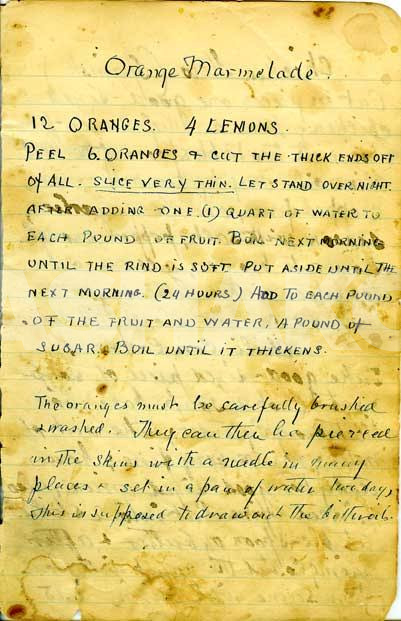 Orange Marmelade.
12 ORANGES. 4 LEMONS.
PEEL 6 ORANGES & CUT THE THICK ENDS OFF
OF ALL. SLICE VERY THIN. LET STAND OVER NIGHT.
AFTER ADDING ONE (1) QUART OF WATER TO
EACH POUND OF FRUIT. BOIL NEXT MORNING
UNTIL THE RIND IS SOFT. PUT ASIDE UNTIL THE
NEXT MORNING. (24 HOURS) ADD TO EACH POUND
OF THE FRUIT AND WATER, A POUND OF
SUGAR. BOIL UNTIL IT THICKENS.
The oranges must be carefully brushed
& washed. They can then be pierced
in the skins with a needle in many
places & set in a pan of water two days,
this is supposed to draw out the bitter oil.